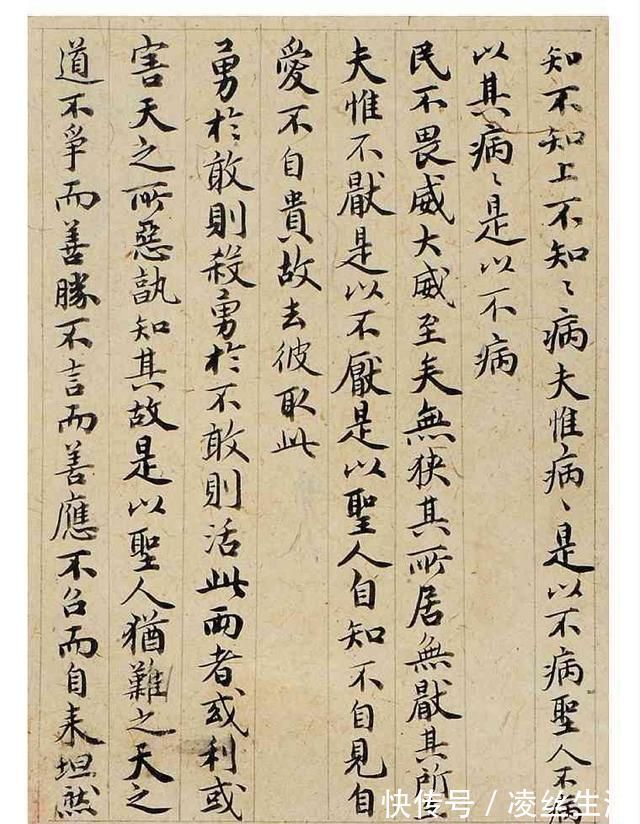 知不知上不知〻病夫惟病〻是以不病聖人不病
以其病〻是以不病
民不畏威大威至矣無狹其所居無猒其所
夫惟不猒是以不厭是以聖人自知不自見自
愛不自貴故去彼取此
勇於敢則殺勇於不敢則活此兩者或利或
害天之所惡孰知其故是以聖人猶難之天之
道不爭而善勝不言而善應不召而自来坦然
快传号／凌丝生